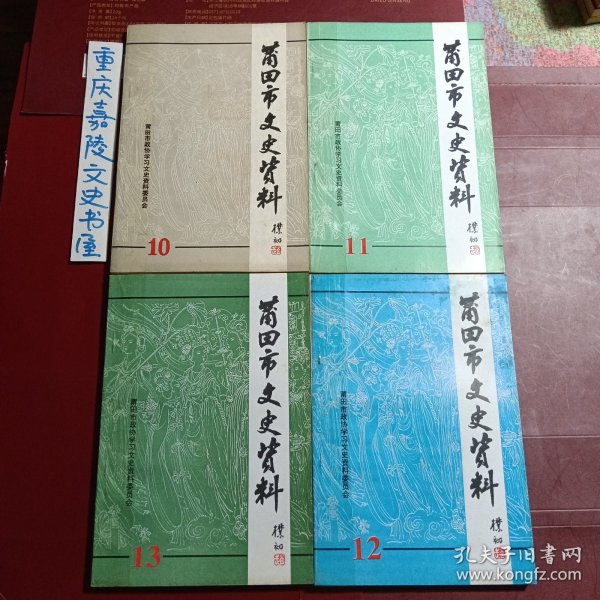 重庆嘉陵文史书屋
莆田市文史资料
朴初
莆田市政协学习文史资料委员会
10
莆田市文史资料
朴初
莆田市政协学习文史资料委员会
11
莆田市文史资料
朴初
莆田市政协学习文史资料委员会
13
莆田市文史资料
朴初
莆田市政协学习文史资料委员会
12
孔夫子旧书网
www.kongfz.com